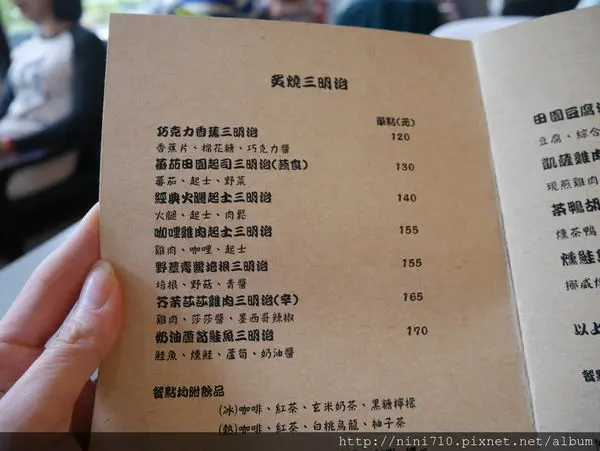 炙燒三明治
單點(元)
巧克力香蕉三明治 120
香蕉片、棉花糖、巧克力醬
蕃茄田園起司三明治(蔬食) 130
蕃茄、起士、野菜
經典火腿起士三明治 140
火腿、起士、肉鬆
咖哩雞肉起士三明治 155
雞肉、咖哩、起士
野菇青醬培根三明治 155
培根、野菇、青醬
芥茉莎莎雞肉三明治(辛) 165
雞肉、莎莎醬、墨西哥辣椒
奶油蘆筍鮭魚三明治 170
鮭魚、燻鮭、蘆筍、奶油醬
餐點均附飲品
(冰)咖啡、紅茶、玄米奶茶、黑糖檸檬
(熱)咖啡、紅茶、白桃烏龍、柚子茶
田園豆腐
豆腐、綜合
凱薩雞肉
現煎雞肉
茶鴨胡
燻茶鴨
燻鮭
挪威
以上
餐點
http://nini710.pixnet.net/album